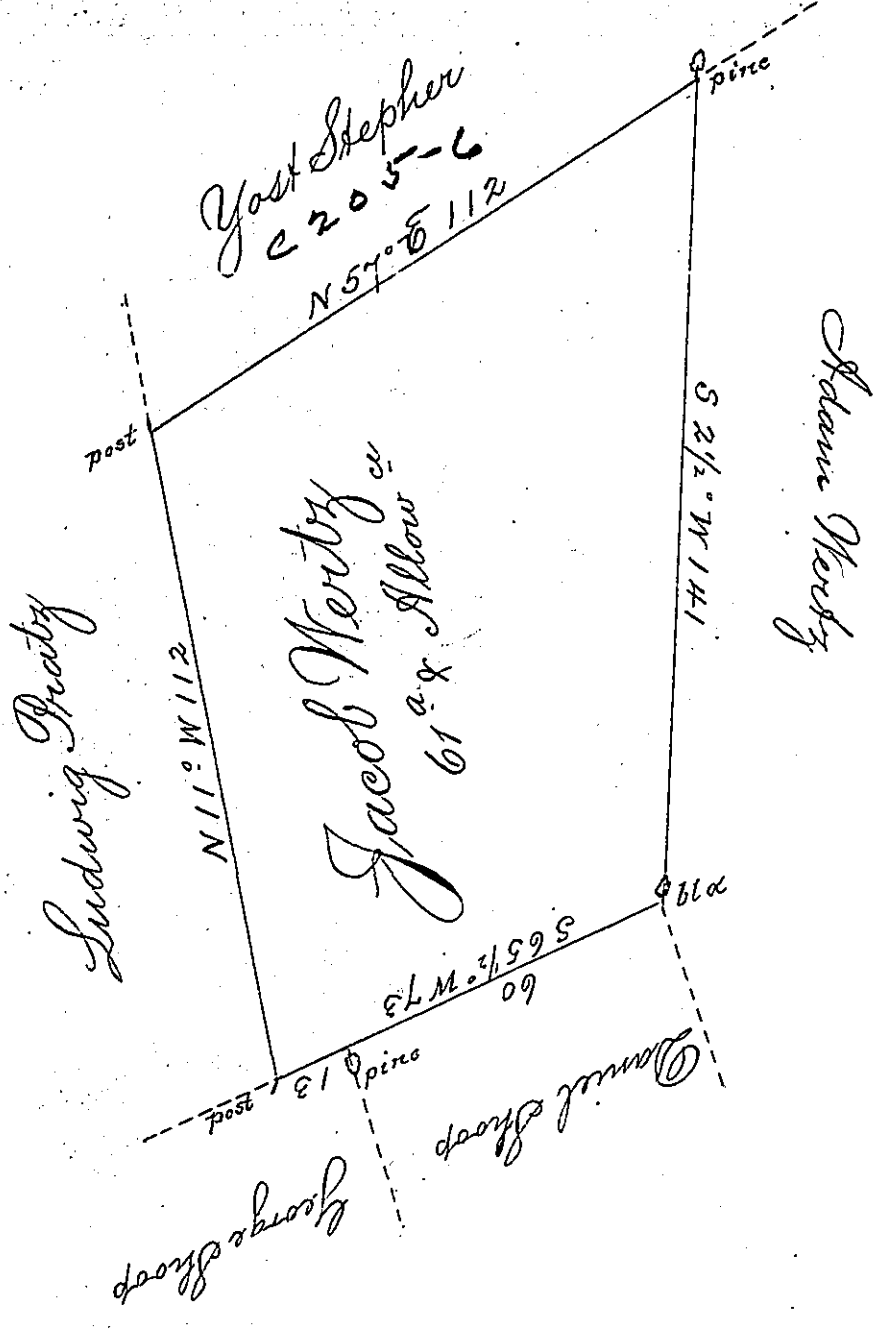 pine
Yost Stepher
C 205-6
N 57° E 112
post
Adam Wertz
S 2½° W 141
Jacob Wertz
61 a. & Allow ce
Ludwig Pratz
N 11° W 112
S 65½° W 73
60
pine
13
post
Daniel Shoop
George Shoop